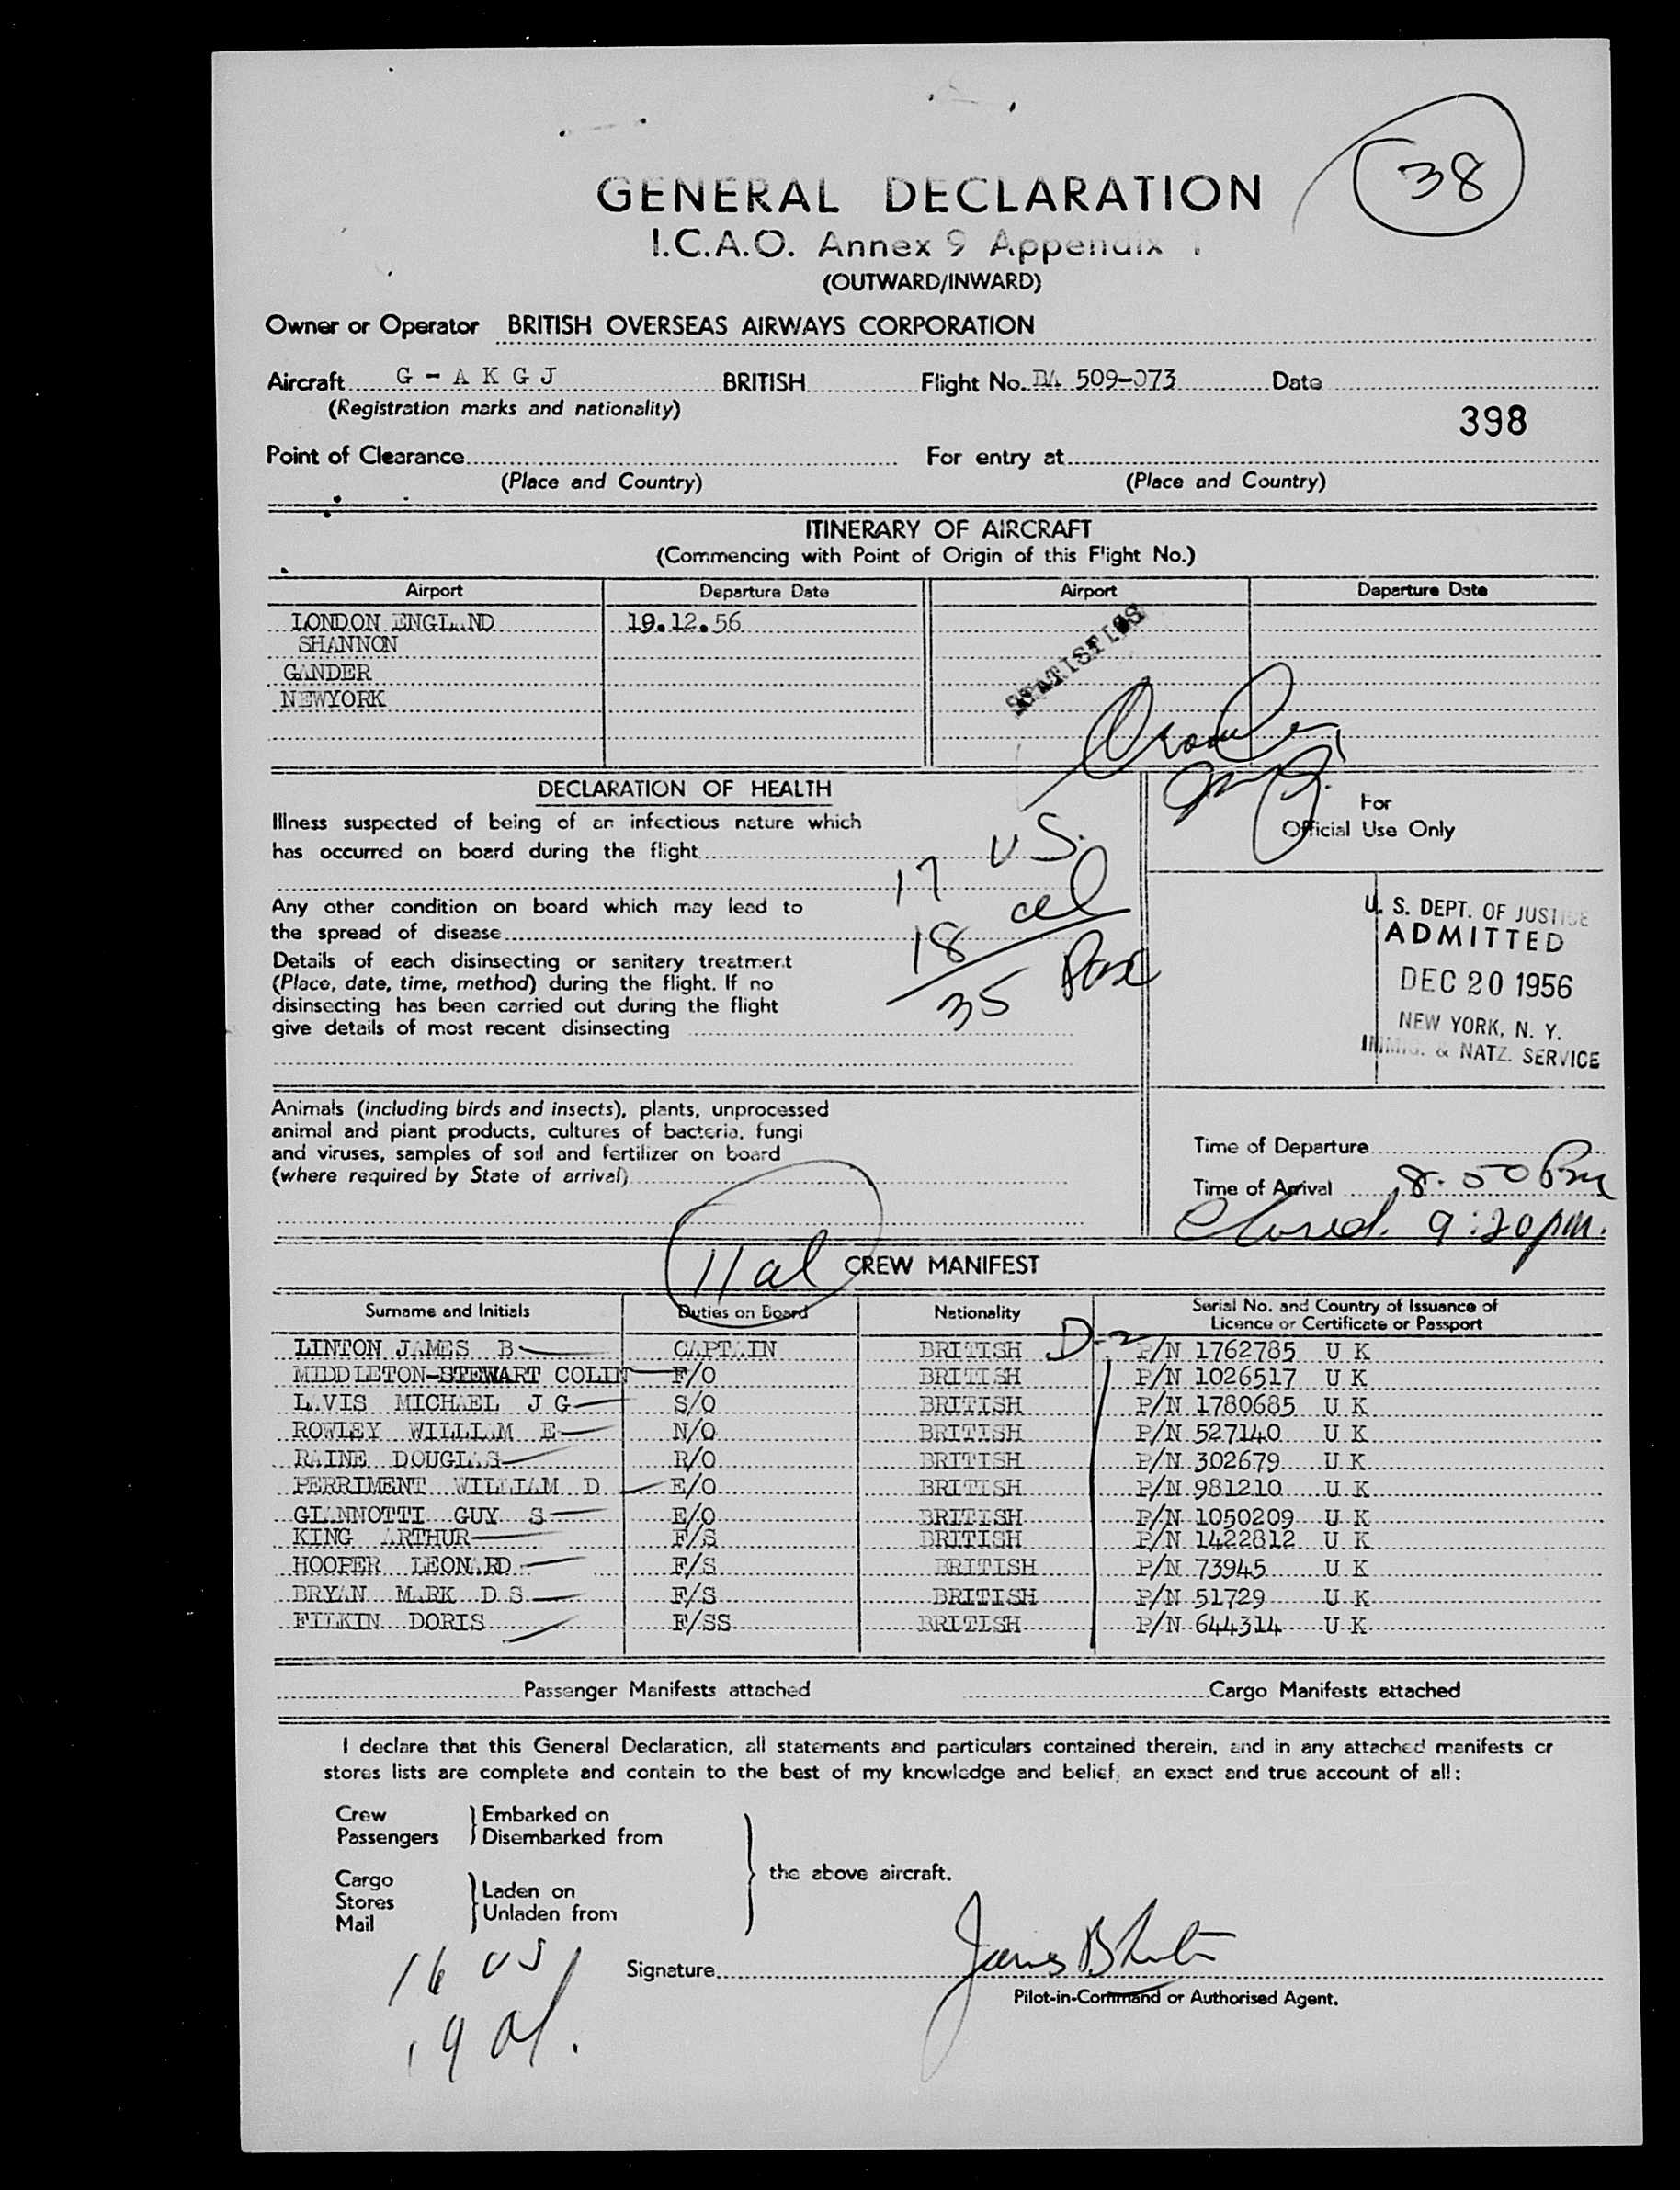 38
GENERAL DECLARATION
I.C.A.O. Annex 9 Appendix 1
(OUTWARD/INWARD)
Owner or Operator BRITISH OVERSEAS AIRWAYS CORPORATION
Aircraft G - A K G J BRITISH Flight No. BA 509-073 Date
(Registration marks and nationality)
398
Point of Clearance For entry at
(Place and Country) (Place and Country)
ITINERARY OF AIRCRAFT
(Commencing with Point of Origin of this Flight No.)
Airport Departure Date Airport Departure Date
LONDON ENGLAND 19.12.56
SHANNON
GANDER
NEWYORK
STATISTICS
DECLARATION OF HEALTH
For
Official Use Only
Illness suspected of being of an infectious nature which
has occurred on board during the flight
17 US.
18 al
35 Pax
Any other condition on board which may lead to
the spread of disease
Details of each disinsecting or sanitary treatment
(Place, date, time, method) during the flight. If no
disinsecting has been carried out during the flight
give details of most recent disinsecting
U. S. DEPT. OF JUSTICE
ADMITTED
DEC 20 1956
NEW YORK, N. Y.
IMMIG. & NATZ. SERVICE
Animals (including birds and insects), plants, unprocessed
animal and plant products, cultures of bacteria, fungi
and viruses, samples of soil and fertilizer on board
(where required by State of arrival)
Time of Departure
Time of Arrival 8.50 Pm
Closed. 9:20 pm.
11 al CREW MANIFEST
Surname and Initials Duties on Board Nationality Serial No. and Country of Issuance of
Licence or Certificate or Passport
LINTON JAMES B CAPTAIN BRITISH D-2 P/N 1762785 U K
MIDDLETON-STEWART COLIN F/O BRITISH P/N 1026517 U K
LAVIS MICHAEL J G S/O BRITISH P/N 1780685 U K
ROWLEY WILLIAM E N/O BRITISH P/N 527140 U K
RAINE DOUGLAS R/O BRITISH P/N 302679 U K
PERRIMENT WILLIAM D E/O BRITISH P/N 981210 U K
GIANNOTTI GUY S E/O BRITISH P/N 1050209 U K
KING ARTHUR F/S BRITISH P/N 1422812 U K
HOOPER LEONARD F/S BRITISH P/N 73945 U K
BRYAN MARK D S F/S BRITISH P/N 51729 U K
FILKIN DORIS F/SS BRITISH P/N 644314 U K
Passenger Manifests attached Cargo Manifests attached
I declare that this General Declaration, all statements and particulars contained therein, and in any attached manifests or
stores lists are complete and contain to the best of my knowledge and belief, an exact and true account of all:
Crew } Embarked on
Passengers } Disembarked from
the above aircraft.
Cargo
Stores } Laden on
Mail } Unladen from
16 US
19 al.
Signature James B Linton
Pilot-in-Command or Authorised Agent.